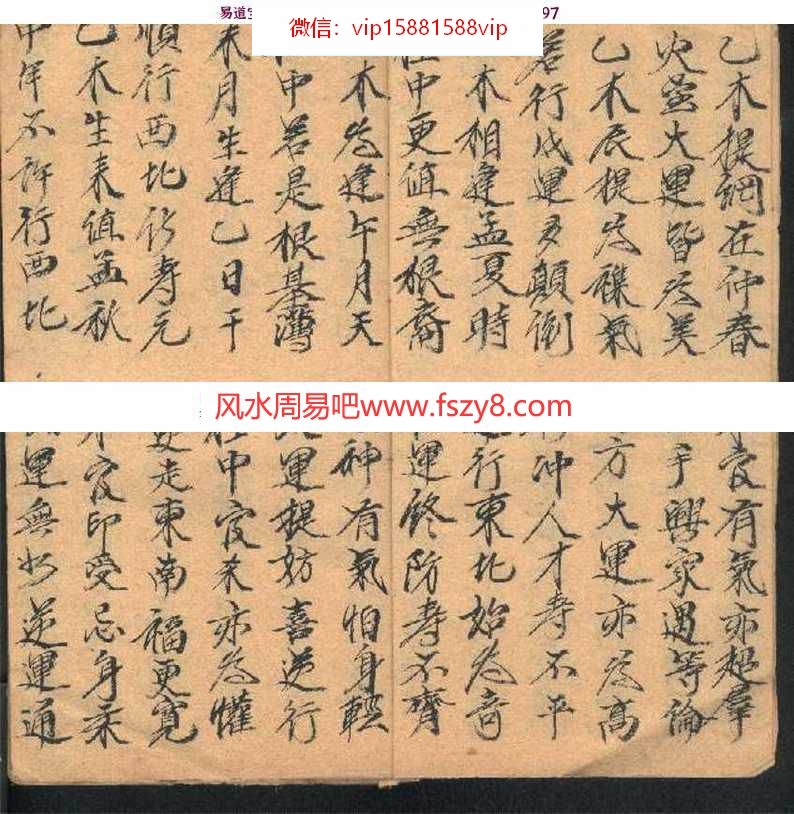 易道
97
微信：vip15881588vip
乙木提綱在仲春
火大運皆为美
乙木辰提为襍氣
若行戌運多顛倒
木相逢孟夏時
柱中更值無根裔
木为逢午月天
中若是根基薄
未月生逢乙日干
順行西北寿元
乙木生来值孟秋
中年不許行西北
风水周易吧www.fszy8.com
官有氣亦超羣
手興家過等倫
方大運亦为高
冲人才寿不平
行東北始为奇
運終防寿不齊
神有氣怕身輕
運提妨喜逆行
柱中官来亦为懽
走東南福更寬
才官印受忌身柔
運無如逆運通